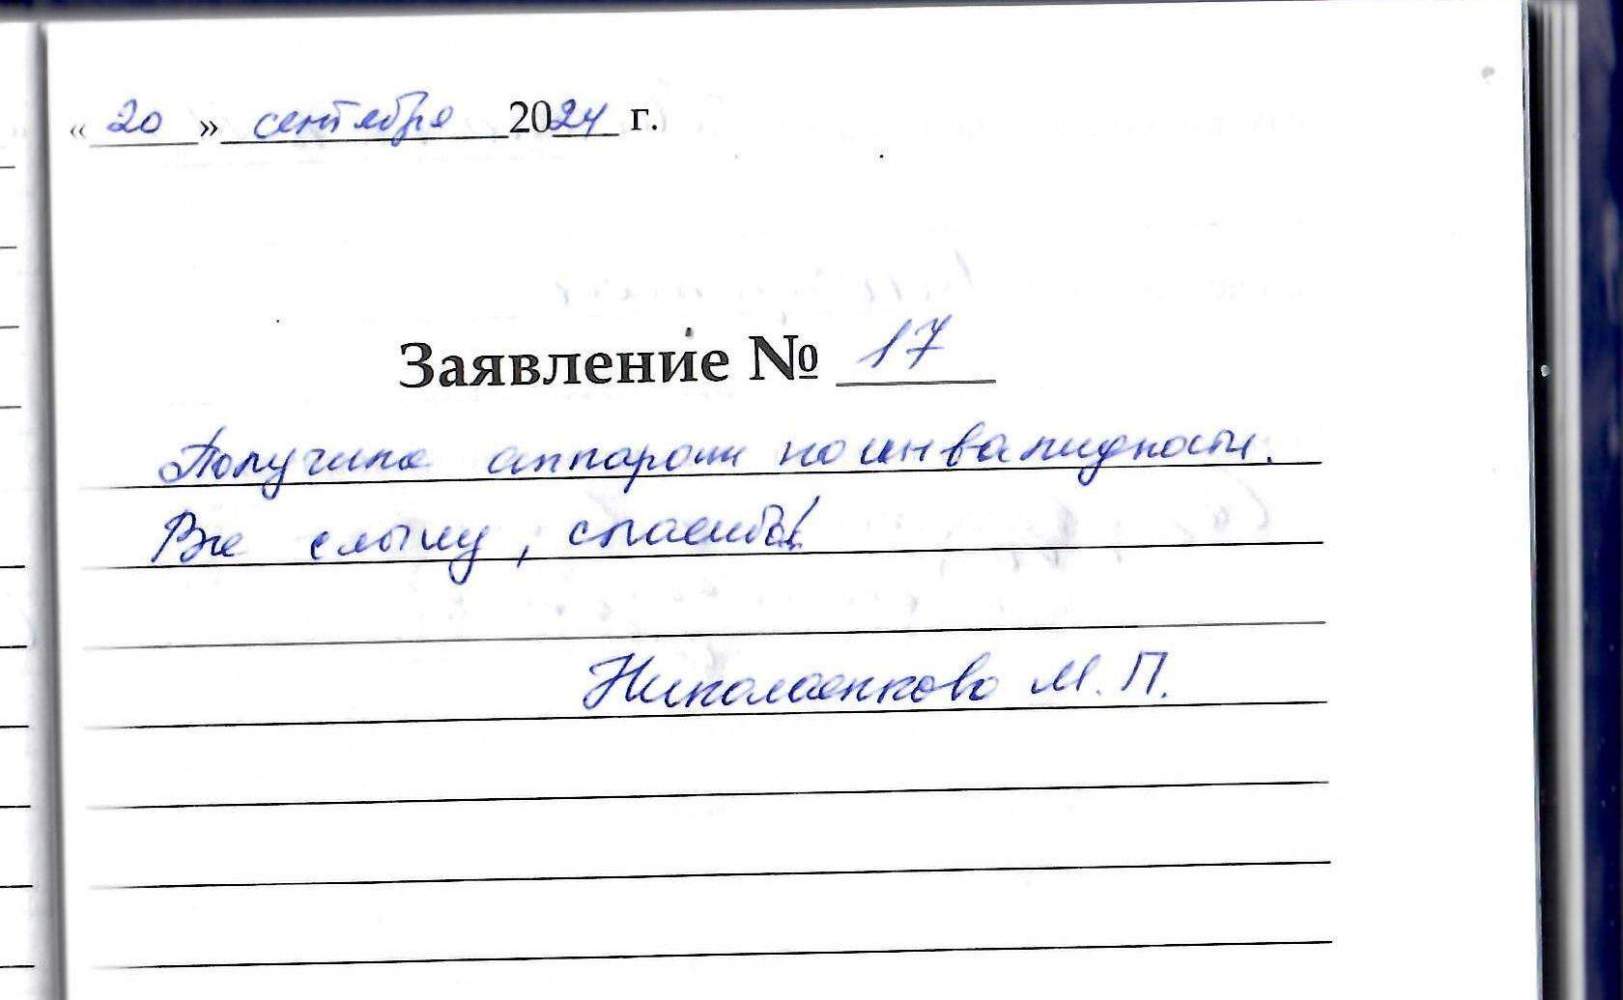 « 20 » сентября 2024 г.
Заявление № 17
Получила аппарат по инвалидности.
Все слышу, спасибо!
Николаенкова М. П.